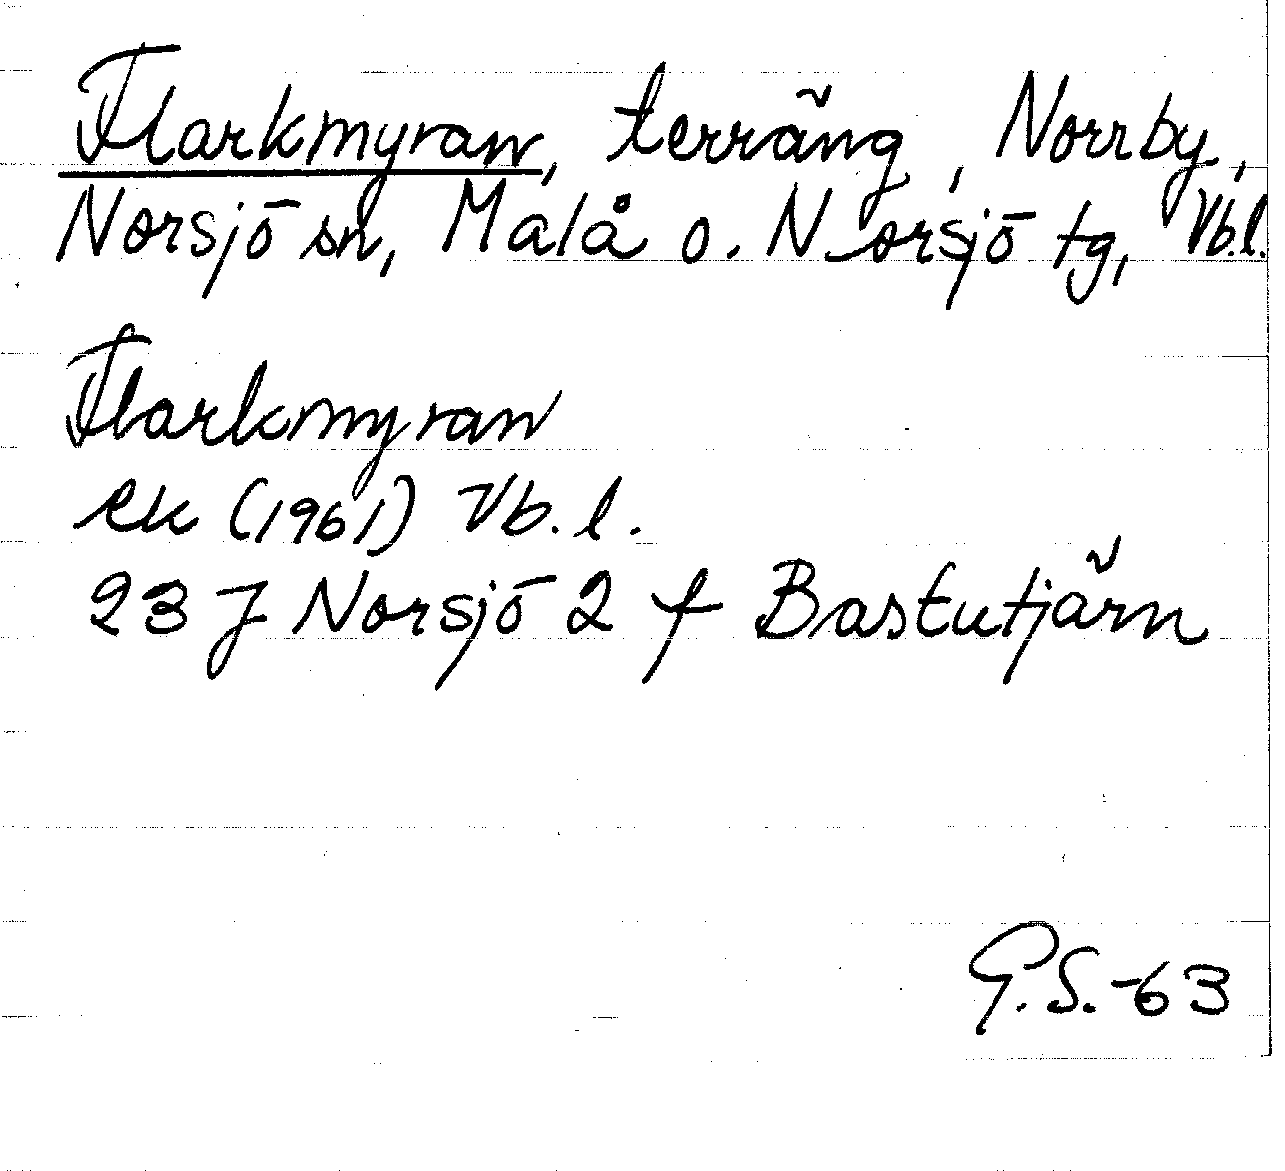 Flarkmyran, terräng, Norrby,
Norsjö sn, Malå o. Norsjö tg, Vb.l.
Flarkmyran
ek (1961) Vb.l.
23 J Norsjö 2 f Bastutjärn
G.S.-63